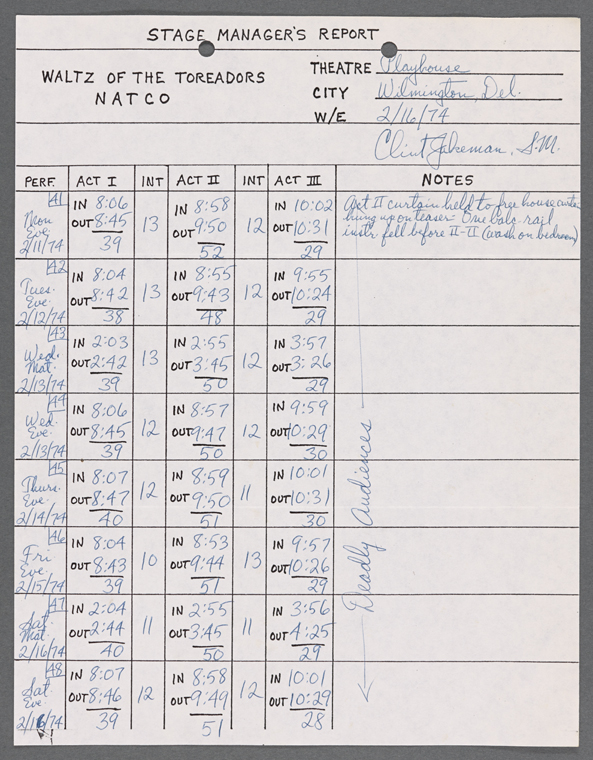 STAGE MANAGER'S REPORT
WALTZ OF THE TOREADORS
NATCO
THEATRE Playhouse
CITY Wilmington, Del.
W/E 2/16/74
Clint Jakeman, S.M.
PERF. ACT I INT ACT II INT ACT III NOTES
41 Mon Eve. 2/11/74
IN 8:06 OUT 8:45 39
13
IN 8:58 OUT 9:50 52
12
IN 10:02 OUT 10:31 29
Act II curtain held to free house curtain
hung up on teaser. One balc. rail
instr. fell before II-II (wash on bedroom)
42 Tues. Eve. 2/12/74
IN 8:04 OUT 8:42 38
13
IN 8:55 OUT 9:43 48
12
IN 9:55 OUT 10:24 29
43 Wed. Mat. 2/13/74
IN 2:03 OUT 2:42 39
13
IN 2:55 OUT 3:45 50
12
IN 3:57 OUT 3:26 29
44 Wed. Eve. 2/13/74
IN 8:06 OUT 8:45 39
12
IN 8:57 OUT 9:47 50
12
IN 9:59 OUT 10:29 30
45 Thurs. Eve. 2/14/74
IN 8:07 OUT 8:47 40
12
IN 8:59 OUT 9:50 51
11
IN 10:01 OUT 10:31 30
46 Fri Eve. 2/15/74
IN 8:04 OUT 8:43 39
10
IN 8:53 OUT 9:44 51
13
IN 9:57 OUT 10:26 29
47 Sat. Mat. 2/16/74
IN 2:04 OUT 2:44 40
11
IN 2:55 OUT 3:45 50
11
IN 3:56 OUT 4:25 29
48 Sat. Eve. 2/16/74
IN 8:07 OUT 8:46 39
12
IN 8:58 OUT 9:49 51
12
IN 10:01 OUT 10:29 28
Deadly Audiences